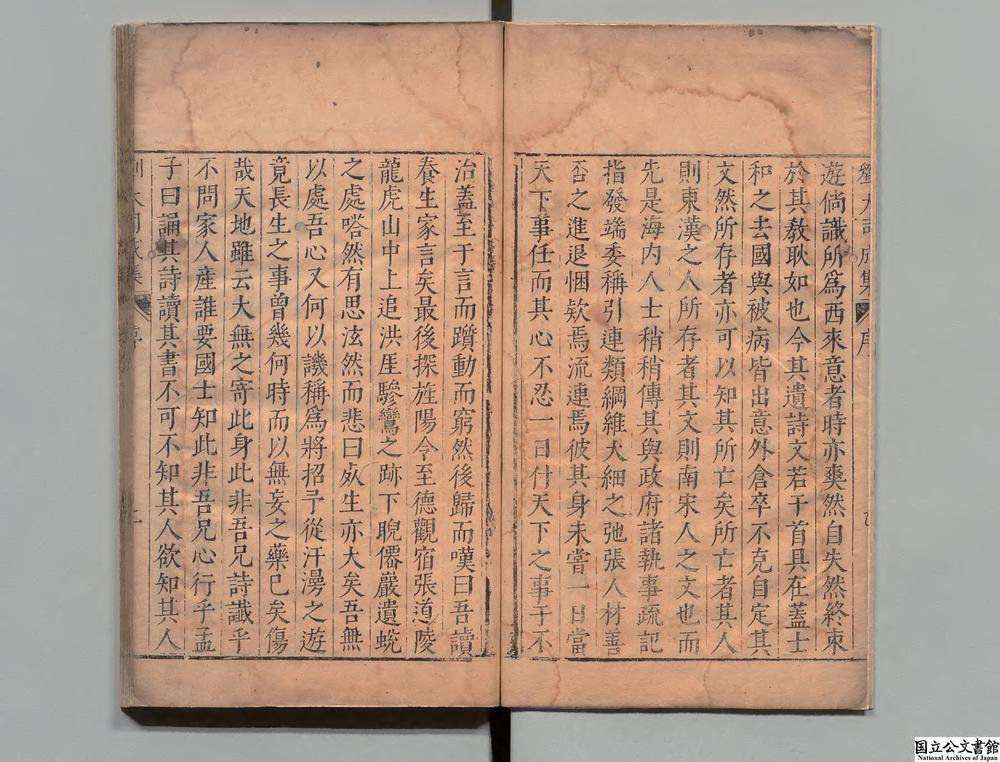 遊倘識所為西來意者時亦爽然自失然終束
於其教耿如也今其遺詩文若干首具在蓋士
和之去國與被病皆出意外倉卒不克自定其
文然所存者亦可以知其所亡矣所亡者其人
則東漢之人所存者其文則南宋人之文也而
先是海內人士稍稍傳其與政府諸執事疏記
指發端委稱引連類綱維大細之弛張人材善
否之進退悃欵焉流連焉彼其身未嘗一日當
天下事任而其心不忍一日付天下之事于不
治蓋至于言而躓動而窮然後歸而嘆曰吾讀
養生家言矣最後探旌陽令至德觀宿張道陵
龍虎山中上追洪厓驂鸞之跡下睨僊巖遺蛻
之處嗒然有思泫然而悲曰死生亦大矣吾無
以處吾心又何以譏稱為將招予從汗漫之遊
竟長生之事曾幾何時而以無妄之藥已矣傷
哉天地雖云大無之寄此身此非吾兄詩讖乎
不問家人產誰要國士知此非吾兄心行乎孟
子曰誦其詩讀其書不可不知其人欲知其人
序
國立公文書館
National Archives of Japan